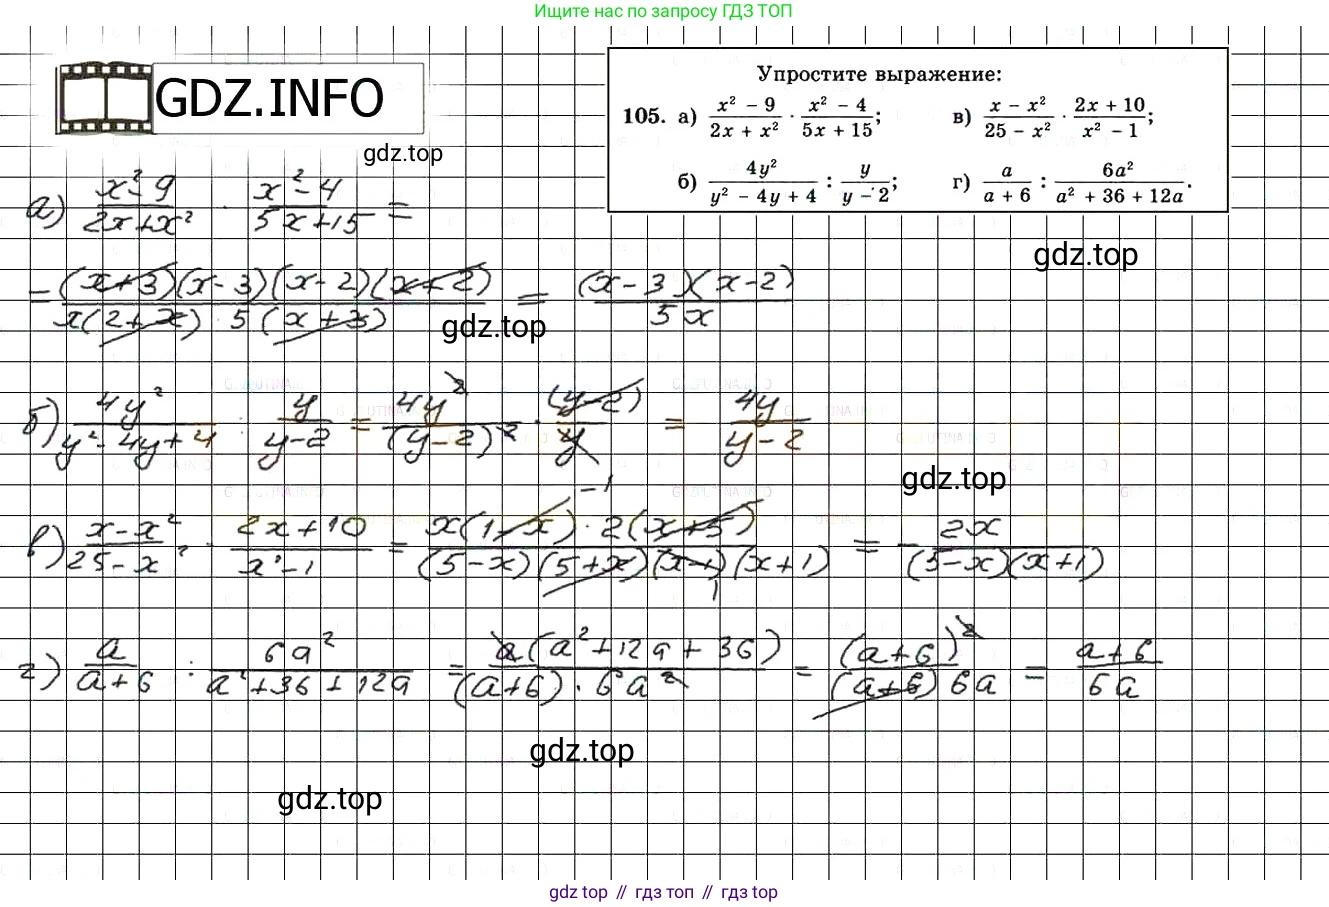 Ищите нас по запросу ГДЗ ТОП
GDZ.INFO
gdz.top
Упростите выражение:
105. а) (x² − 9)/(2x + x²) · (x² − 4)/(5x + 15);
в) (x − x²)/(25 − x²) · (2x + 10)/(x² − 1);
б) 4y²/(y² − 4y + 4) : y/(y − 2);
г) a/(a + 6) : 6a²/(a² + 36 + 12a).
gdz.top
а) (x²−9)/(2x+x²) · (x²−4)/(5x+15) =
= (x+3)(x−3)(x−2)(x+2)/(x(2+x)·5(x+3)) = (x−3)(x−2)/(5x)
gdz.top
б) 4y²/(y²−4y+4) : y/(y−2) = 4y²/(y−2)² · (y−2)/y = 4y/(y−2)
gdz.top
−1
в) (x−x²)/(25−x²) · (2x+10)/(x²−1) = x(1−x)·2(x+5)/((5−x)(5+x)(x−1)(x+1)) = − 2x/((5−x)(x+1))
1
г) a/(a+6) : 6a²/(a²+36+12a) = a(a²+12a+36)/((a+6)·6a²) = (a+6)²/((a+6)6a) = (a+6)/(6a)
gdz.top
gdz.top
gdz top // гдз топ // гдз top